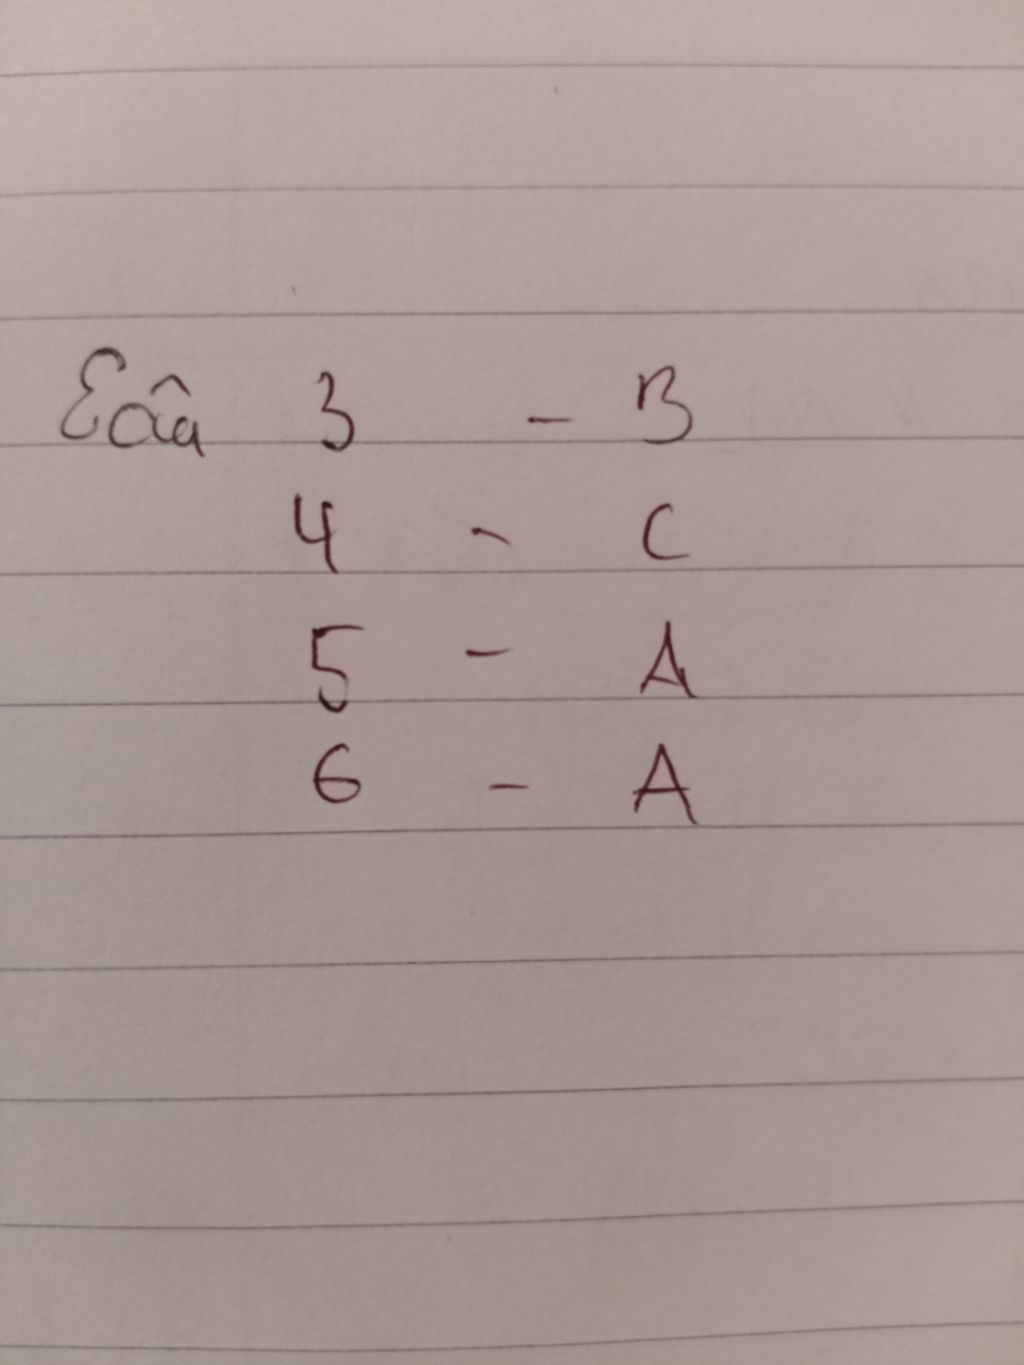 Câu 3 - B
4 - C
5 - A
6 - A